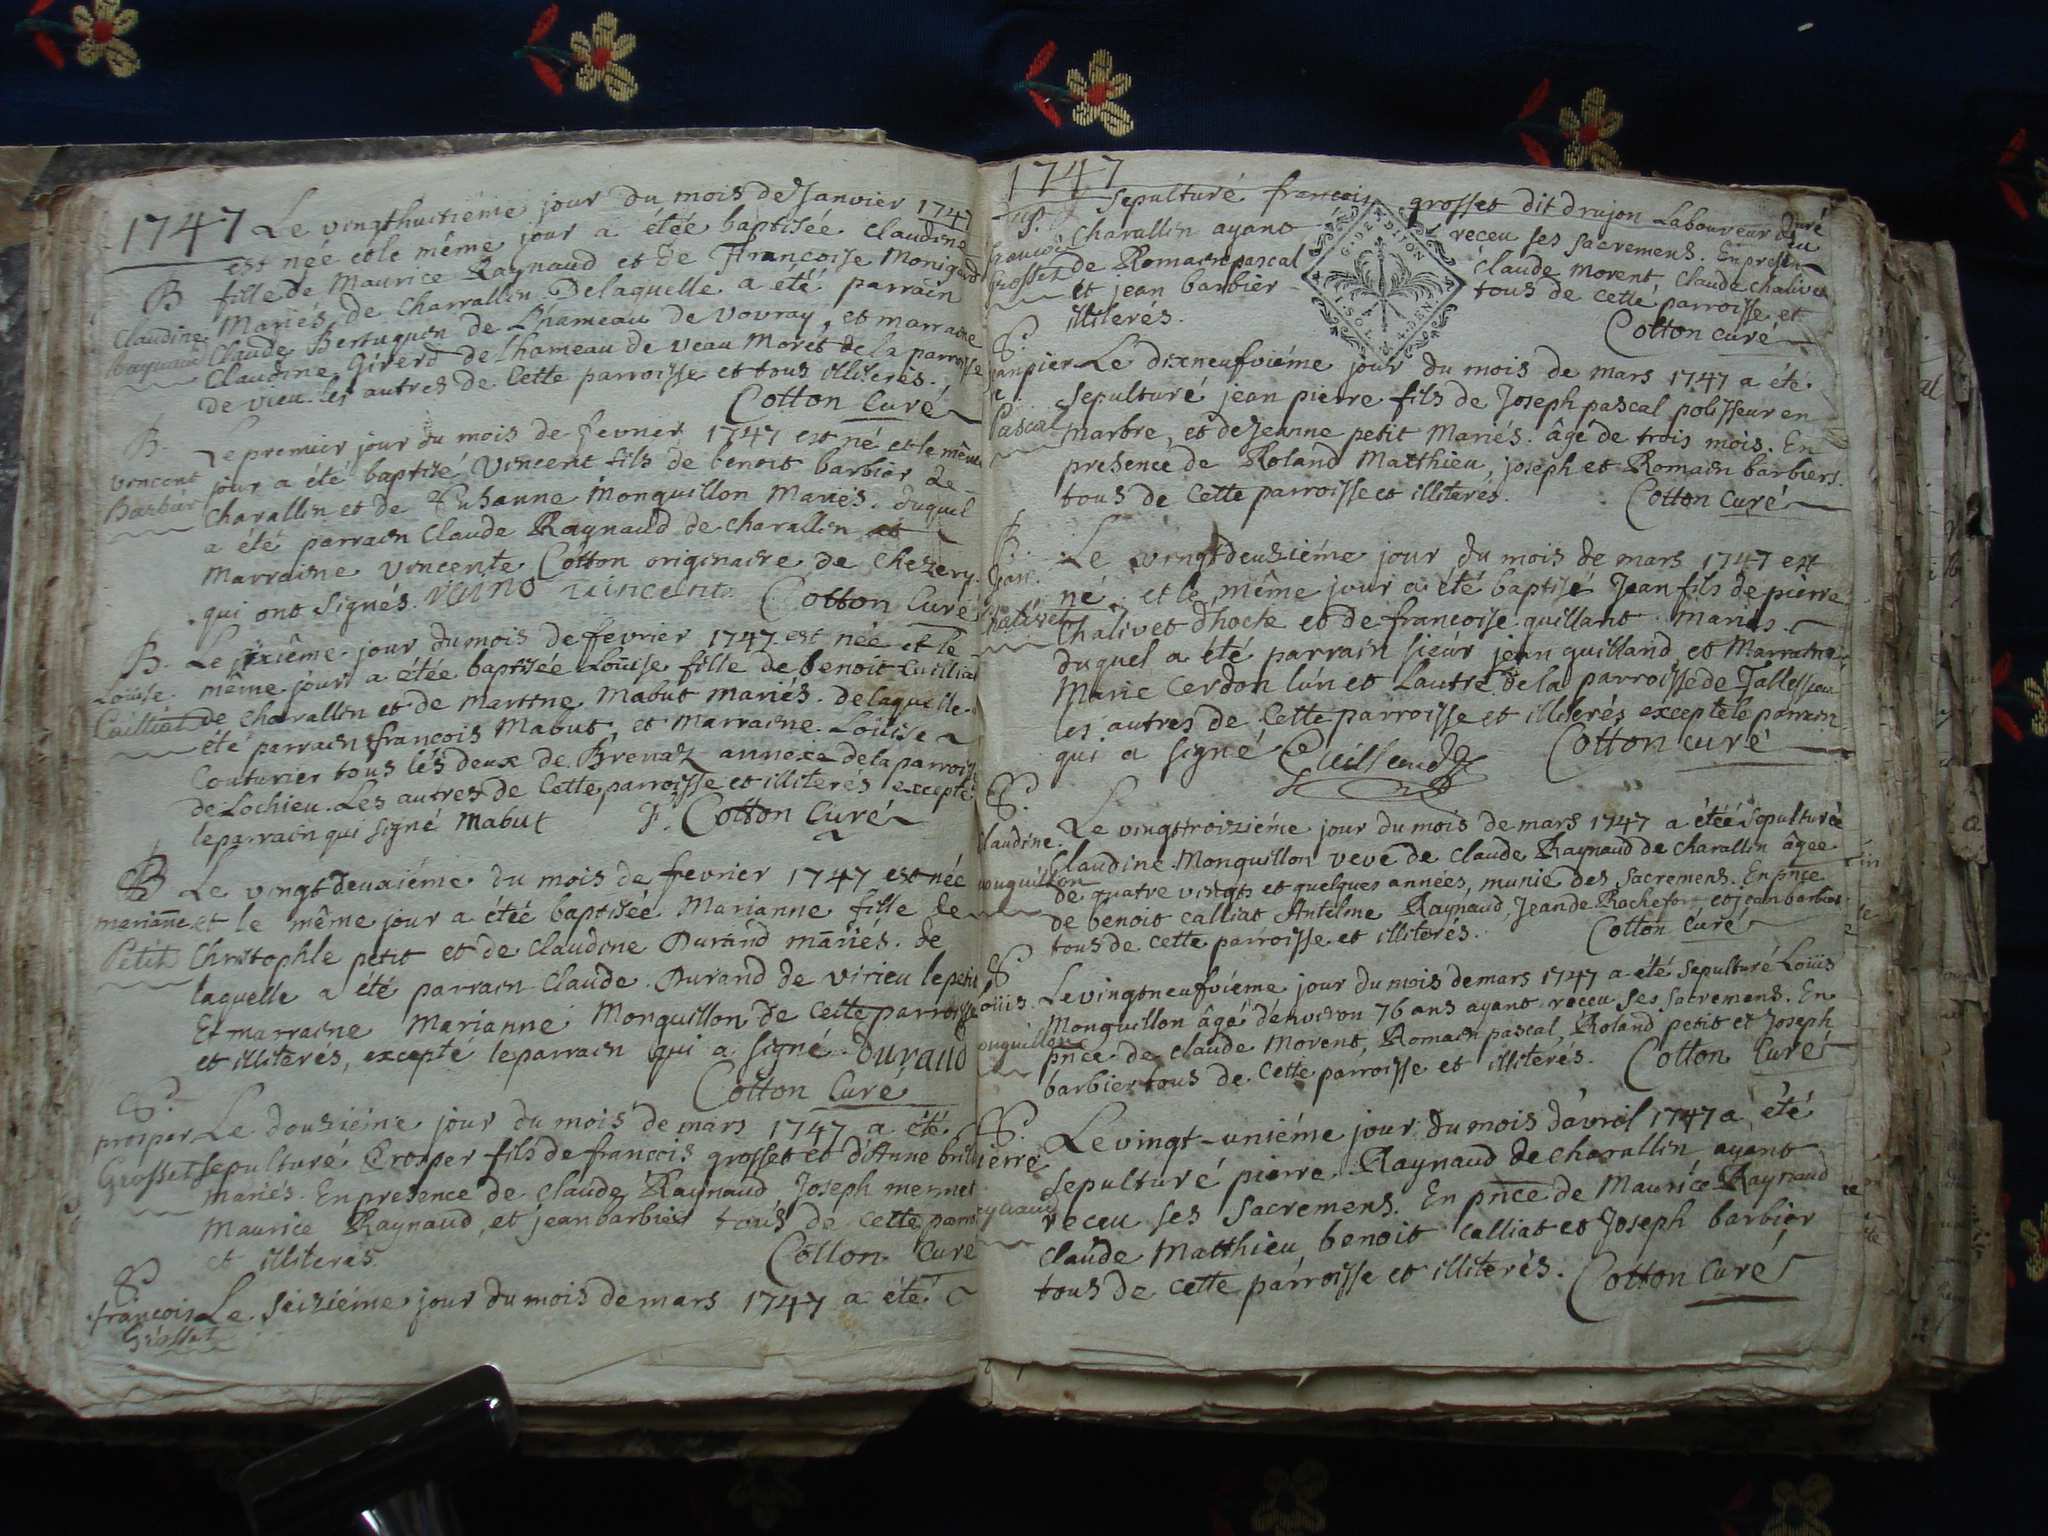 1747 Le vingthuitiéme jour du mois de Janvier 1747
est née et le même jour a étée baptisée Claudine
B fille de Maurice Raynaud et de Françoise Monigaud
Claudine Mariés de Charrallin Delaquelle a été parrain
Raynaud Claude Bertuquin de Lhameau de Vovray, et marraine
Claudine Girerd de lhameau de veau Moret de la parroisse
de vieu. les autres de Cette parroisse et tous illiterés.
Cotton Curé
B. Le premier jour du mois de fevrier 1747 est né et le même
vincent jour a été baptisé Vincent fils de benoit barbier de
Barbier Charallin et de Susanne Monguillon Mariés. duquel
a été parrain Claude Raynaud de Charallin et
Marraine vincente Cotton originaire de Chezery.
qui ont signés. Cotton Curé
B. Le sixiême jour du mois de fevrier 1747 est née et le
Loüise même jour a étée baptisée Loüise fille de benoit Cailliat
Cailliat de Charrallin et de Martine Mabut mariés. delaquelle
été parrain françois Mabut, et marraine Loüise
Couturier tous les deux de Brenaz annexe de la parroisse
de Lochieu. Les autres de Cette parroisse et illiterés excepté
le parrain qui signé Mabut F. Cotton Curé
B Le vingtdeuxiéme du mois de fevrier 1747 est née
marianne et le même jour a étéé baptisée Marianne fille de
Petit Christophle petit et de Claudine Durand mariés. de
laquelle a été parrain Claude Durand de virieu le petit
Et marraine Marianne Monguillon de Cette parroisse
et illiterés, excepté le parrain qui a signé. Durand
Cotton Curé
S.
prosper Le douziéme jour du mois de mars 1747 a été
Grosset sepulturé Prosper fils de françois grosset et d'Anne
mariés. En presence de Claude Raynaud Joseph mermet
Maurice Raynaud, et jean barbier tous de cette parroi
et illiterés. Cotton Curé
S.
françois Le seiziéme jour du mois de mars 1747 a été
Grosset
1747
Sep. sepulturé françois grosset dit drujon Laboureur Curé
Charallin ayant receu ses sacremens. En presen
Grosset de Romain pascal Claude Morent, Claude Chalivet
et jean barbier tous de cette parroisse et
illiterés. Cotton curé
G. DE DIJON
S.
jean pier Le dixneufviéme jour du mois de mars 1747 a été
sepulturé jean pierre fils de Joseph pascal polisseur en
Pascal marbre, et de Jeanne petit Mariés. âgé de trois mois. En
presence de Roland Matthieu, joseph et Romain barbiers.
tous de Cette parroisse et illiterés. Cotton Curé
B. Le vingtdeuziéme jour du mois de mars 1747 est
Jean né. et le même jour a été baptisé Jean fils de pierre
Chalivet Chalivet d'hoste et de françoise guillant mariés.
duquel a été parrain sieur jean guilland et Marraine
Marie Cerdon lun et Lautre de la parroisse de Tallessieu
les autres de Cette parroisse et illiterés excepté le parrain
qui a signé Guilland Cotton Curé
S. Le vingttroiziéme jour du mois de mars 1747 a étéé sepulturée
Claudine Claudine Monguillon veve de Claude Raynaud de Charallin âgee
Monguillon de quatre vingts et quelques années, munie des sacremens. En pnce
de benoit calliat Antelme Raynaud, Jean de Rochefort et jean barbier
tous de cette parroisse et illiterés. Cotton Curé
S Le vingtneufviéme jour du mois de mars 1747 a été sepulturé Loüis
Loüis Monguillon âgé d'environ 76 ans ayant receu ses sacremens. En
Monguillon pnce de Claude Morent, Romain pascal, Roland petit et Joseph
barbier tous de Cette parroisse et illiterés. Cotton Curé
S. Le vingt-uniéme jour du mois d'avril 1747 a été
pierre sepulturé pierre Raynaud de Charallin ayant
Raynaud receu ses sacremens. En pnce de Maurice Raynaud
Claude Matthieu, benoit Calliat et Joseph barbier
tous de cette parroisse et illiterés. Cotton Curé